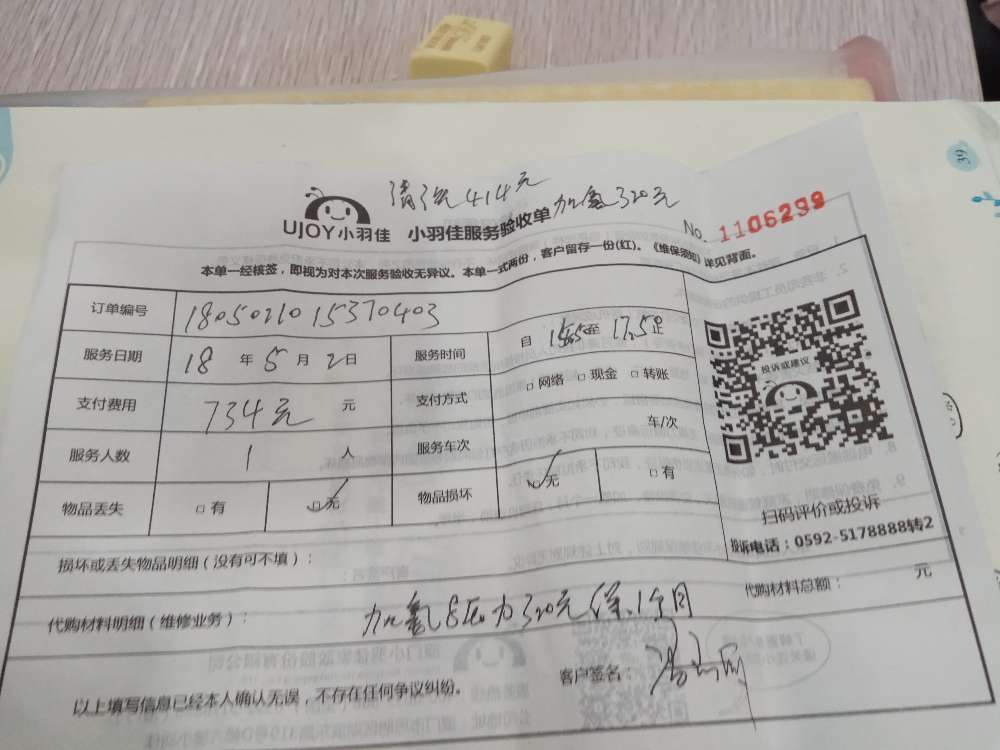 清洗414元
加氟320元
UJOY小羽佳 小羽佳服务验收单 No. 1106299
本单一经核签，即视为对本次服务验收无异议。本单一式两份，客户留存一份(红)。《维保须知》详见背面。
订单编号
服务日期 18 年 5 月 2 日 服务时间 自 至 17:50 止
支付费用 734元 元 支付方式 □网络 □现金 □转账
服务人数 1 人 服务车次 车/次
物品丢失 □有 □无 物品损坏 □无 □有
投诉或建议
扫码评价或投诉
投诉电话：0592-5178888转2
损坏或丢失物品明细（没有可不填）：
代购材料明细（维修业务）： 加氟8压力320元保1个月 代购材料总额： 元
以上填写信息已经本人确认无误，不存在任何争议纠纷。 客户签名：
39